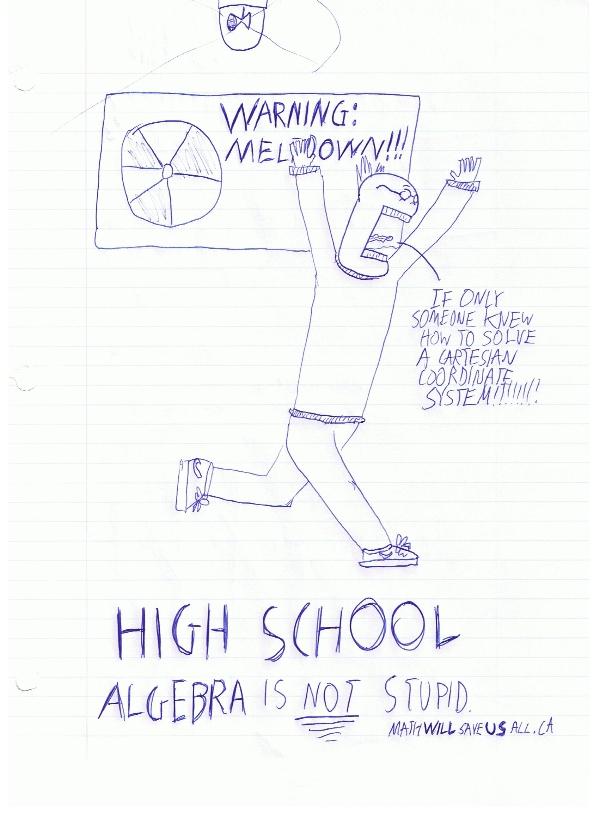 WARNING:
MELTDOWN!!!
IF ONLY
SOMEONE KNEW
HOW TO SOLVE
A CARTESIAN
COORDINATE
SYSTEM!!!!!!!!
HIGH SCHOOL
ALGEBRA IS NOT STUPID.
MATHWILLSAVEUSALL.CA